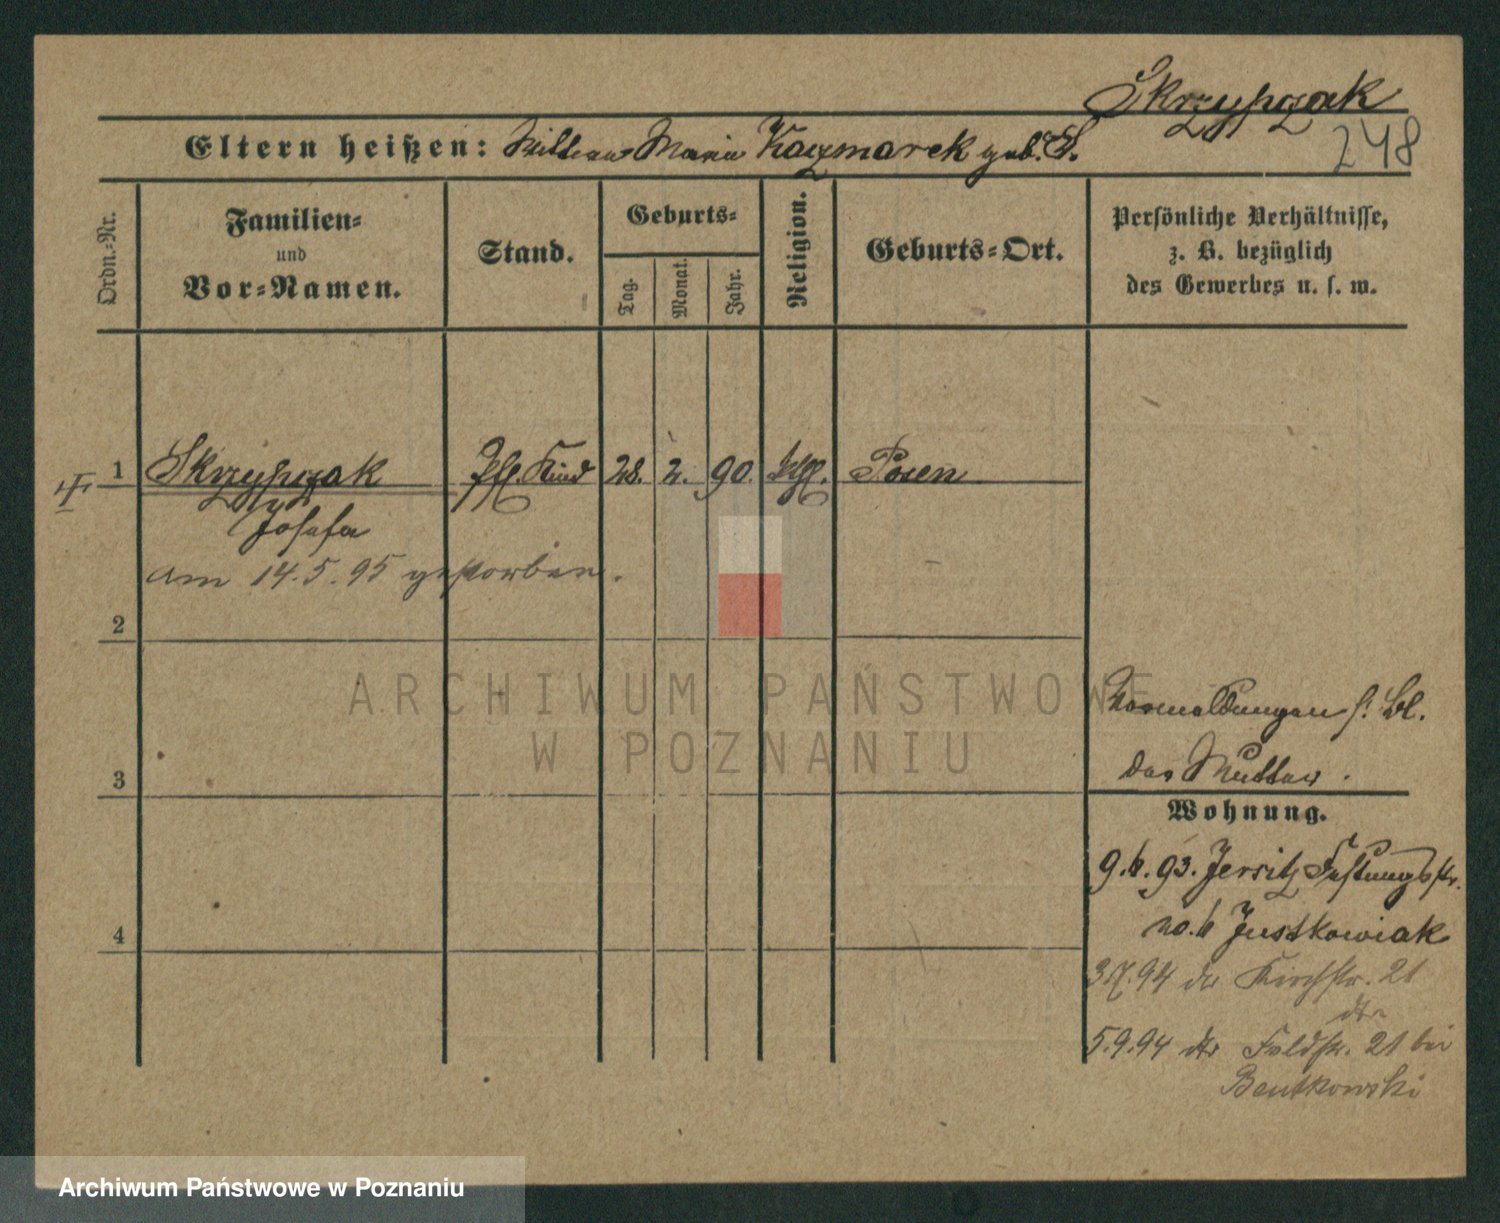 Skrzypczak
248
Eltern heißen: Wittwe Marie Kaczmarek geb. S.
Ordn.-Nr.
Familien- und Vor-Namen.
Stand.
Geburts-
Tag.
Monat.
Jahr.
Religion.
Geburts-Ort.
Persönliche Verhältnisse,
z. B. bezüglich
des Gewerbes u. s. w.
1 Skrzypczak Pfl. Kind 28. 2. 90. kth. Posen
Josefa
am 14.5.95 gestorben.
2
ARCHIWUM PAŃSTWOWE
W POZNANIU
Vormeldungen s. Bl.
der Mutter.
3
Wohnung.
9.6.93. Jersitz Festungsstr.
no. b Justkowiak
4
3.7.94 do Kirchstr. 21
dto
5.9.94 dto Feldstr. 21 bei
Bentkowski
Archiwum Państwowe w Poznaniu